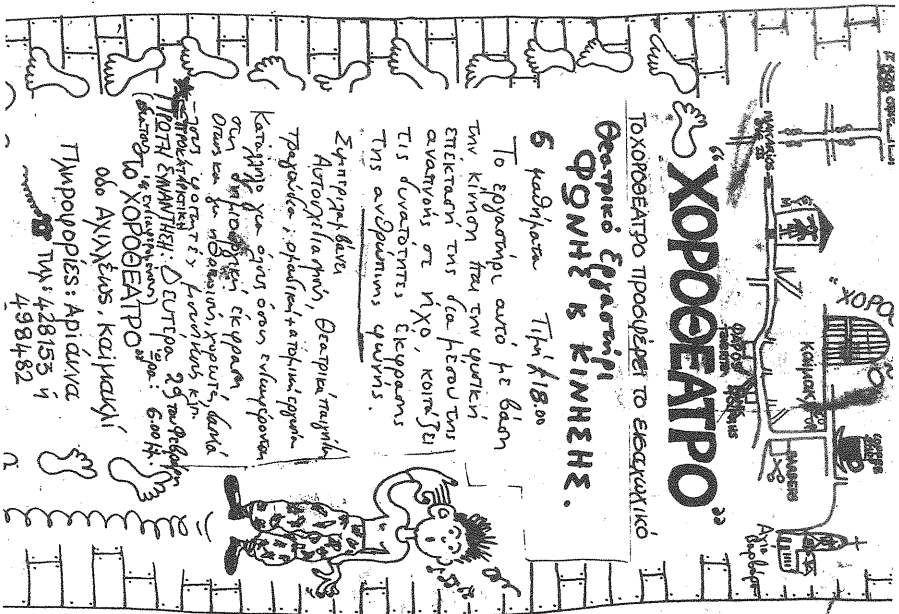 "ΧΟΡΟ
ΚΑΪΜΑΚΛΙ
BARBERS
Αγία
Βαρβάρα
"ΧΟΡΟΘΕΑΤΡΟ"
ΤΟ ΧΟΡΟΘΕΑΤΡΟ ΠΡΟΣΦΕΡΕΙ ΤΟ ΕΙΣΑΓΩΓΙΚΟ
Θεατρικό Εργαστήρι
ΦΩΝΗΣ & ΚΙΝΗΣΗΣ.
6 μαθήματα Τιμή £18.00
Το εργαστήρι αυτό με βάση
την κίνηση και την φυσική
επέκτασή της δια μέσου της
αναπνοής σε ήχο, κοιτάζει
τις δυνατότητες έκφρασης
της ανθρώπινης φωνής.
Συμπεριλαμβάνει
Αυτοσχεδιασμό, Θεατρικά παιχνίδια
Τραγούδια: ομαδική & ατομική εργασία
Κατάλληλο για όλους όσους ενδιαφέρονται
στη δημιουργική έκφραση
όπως και για ηθοποιούς, χορευτές, δασκά
-λους φοιτητές μουσικούς κτλ.
ΠΡΩΤΗ ΣΥΝΑΝΤΗΣΗ: Δευτέρα 29 του Φεβράρη
ώρα: 6.00 μμ.
"Το ΧΟΡΟΘΕΑΤΡΟ"
οδο Αχιλλέως, Καϊμακλί
Πληροφορίες: Αριάννα
Τηλ: 428153 ή
498482